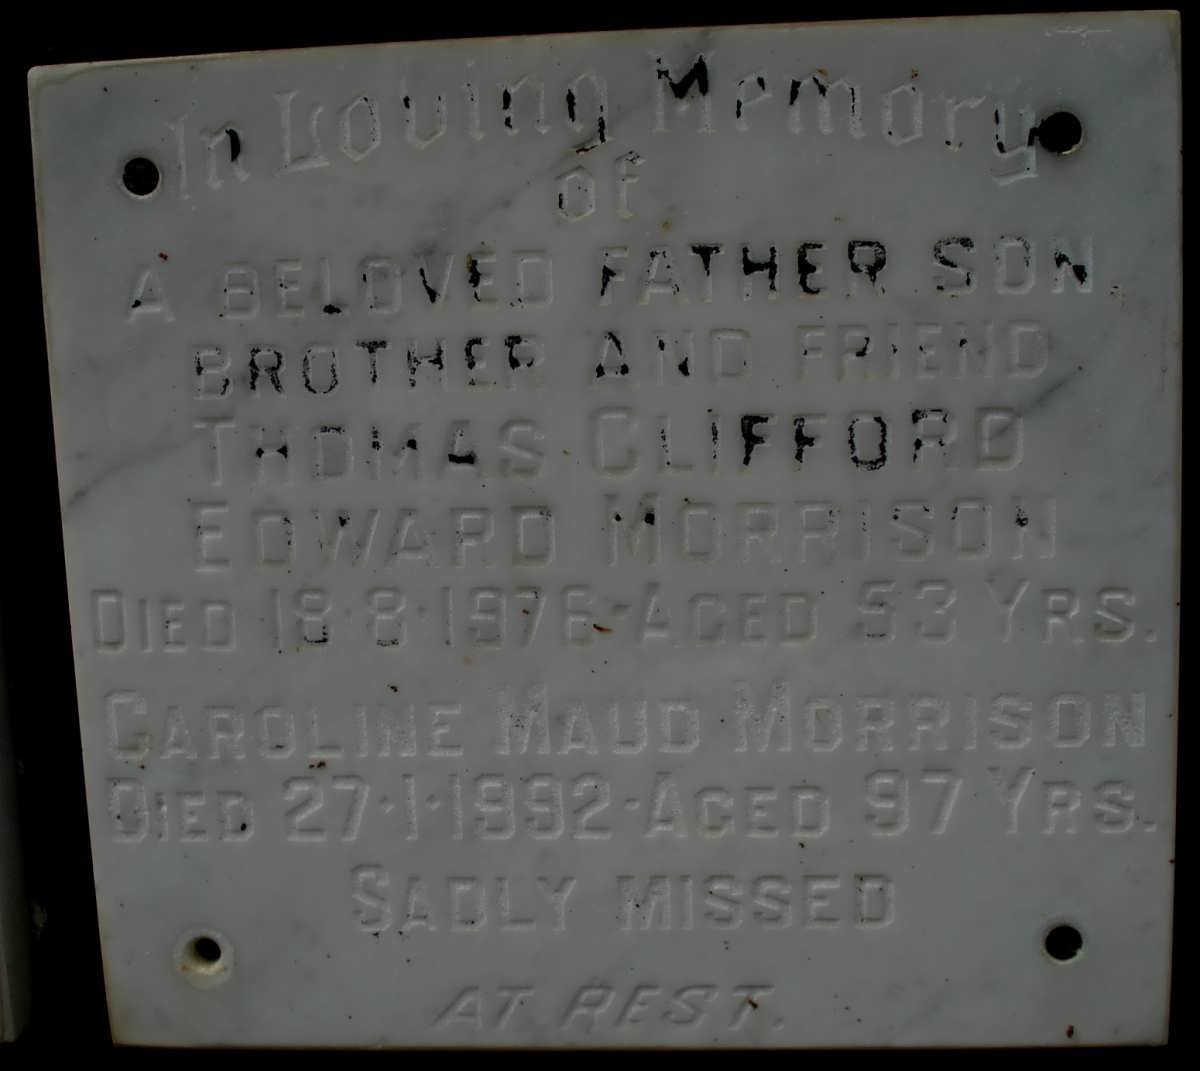 In Loving Memory
of
A BELOVED FATHER SON,
BROTHER AND FRIEND
THOMAS CLIFFORD
EDWARD MORRISON
DIED 18·8·1976·AGED 53 YRS.
CAROLINE MAUD MORRISON
DIED 27·1·1992·AGED 97 YRS.
SADLY MISSED
AT REST.